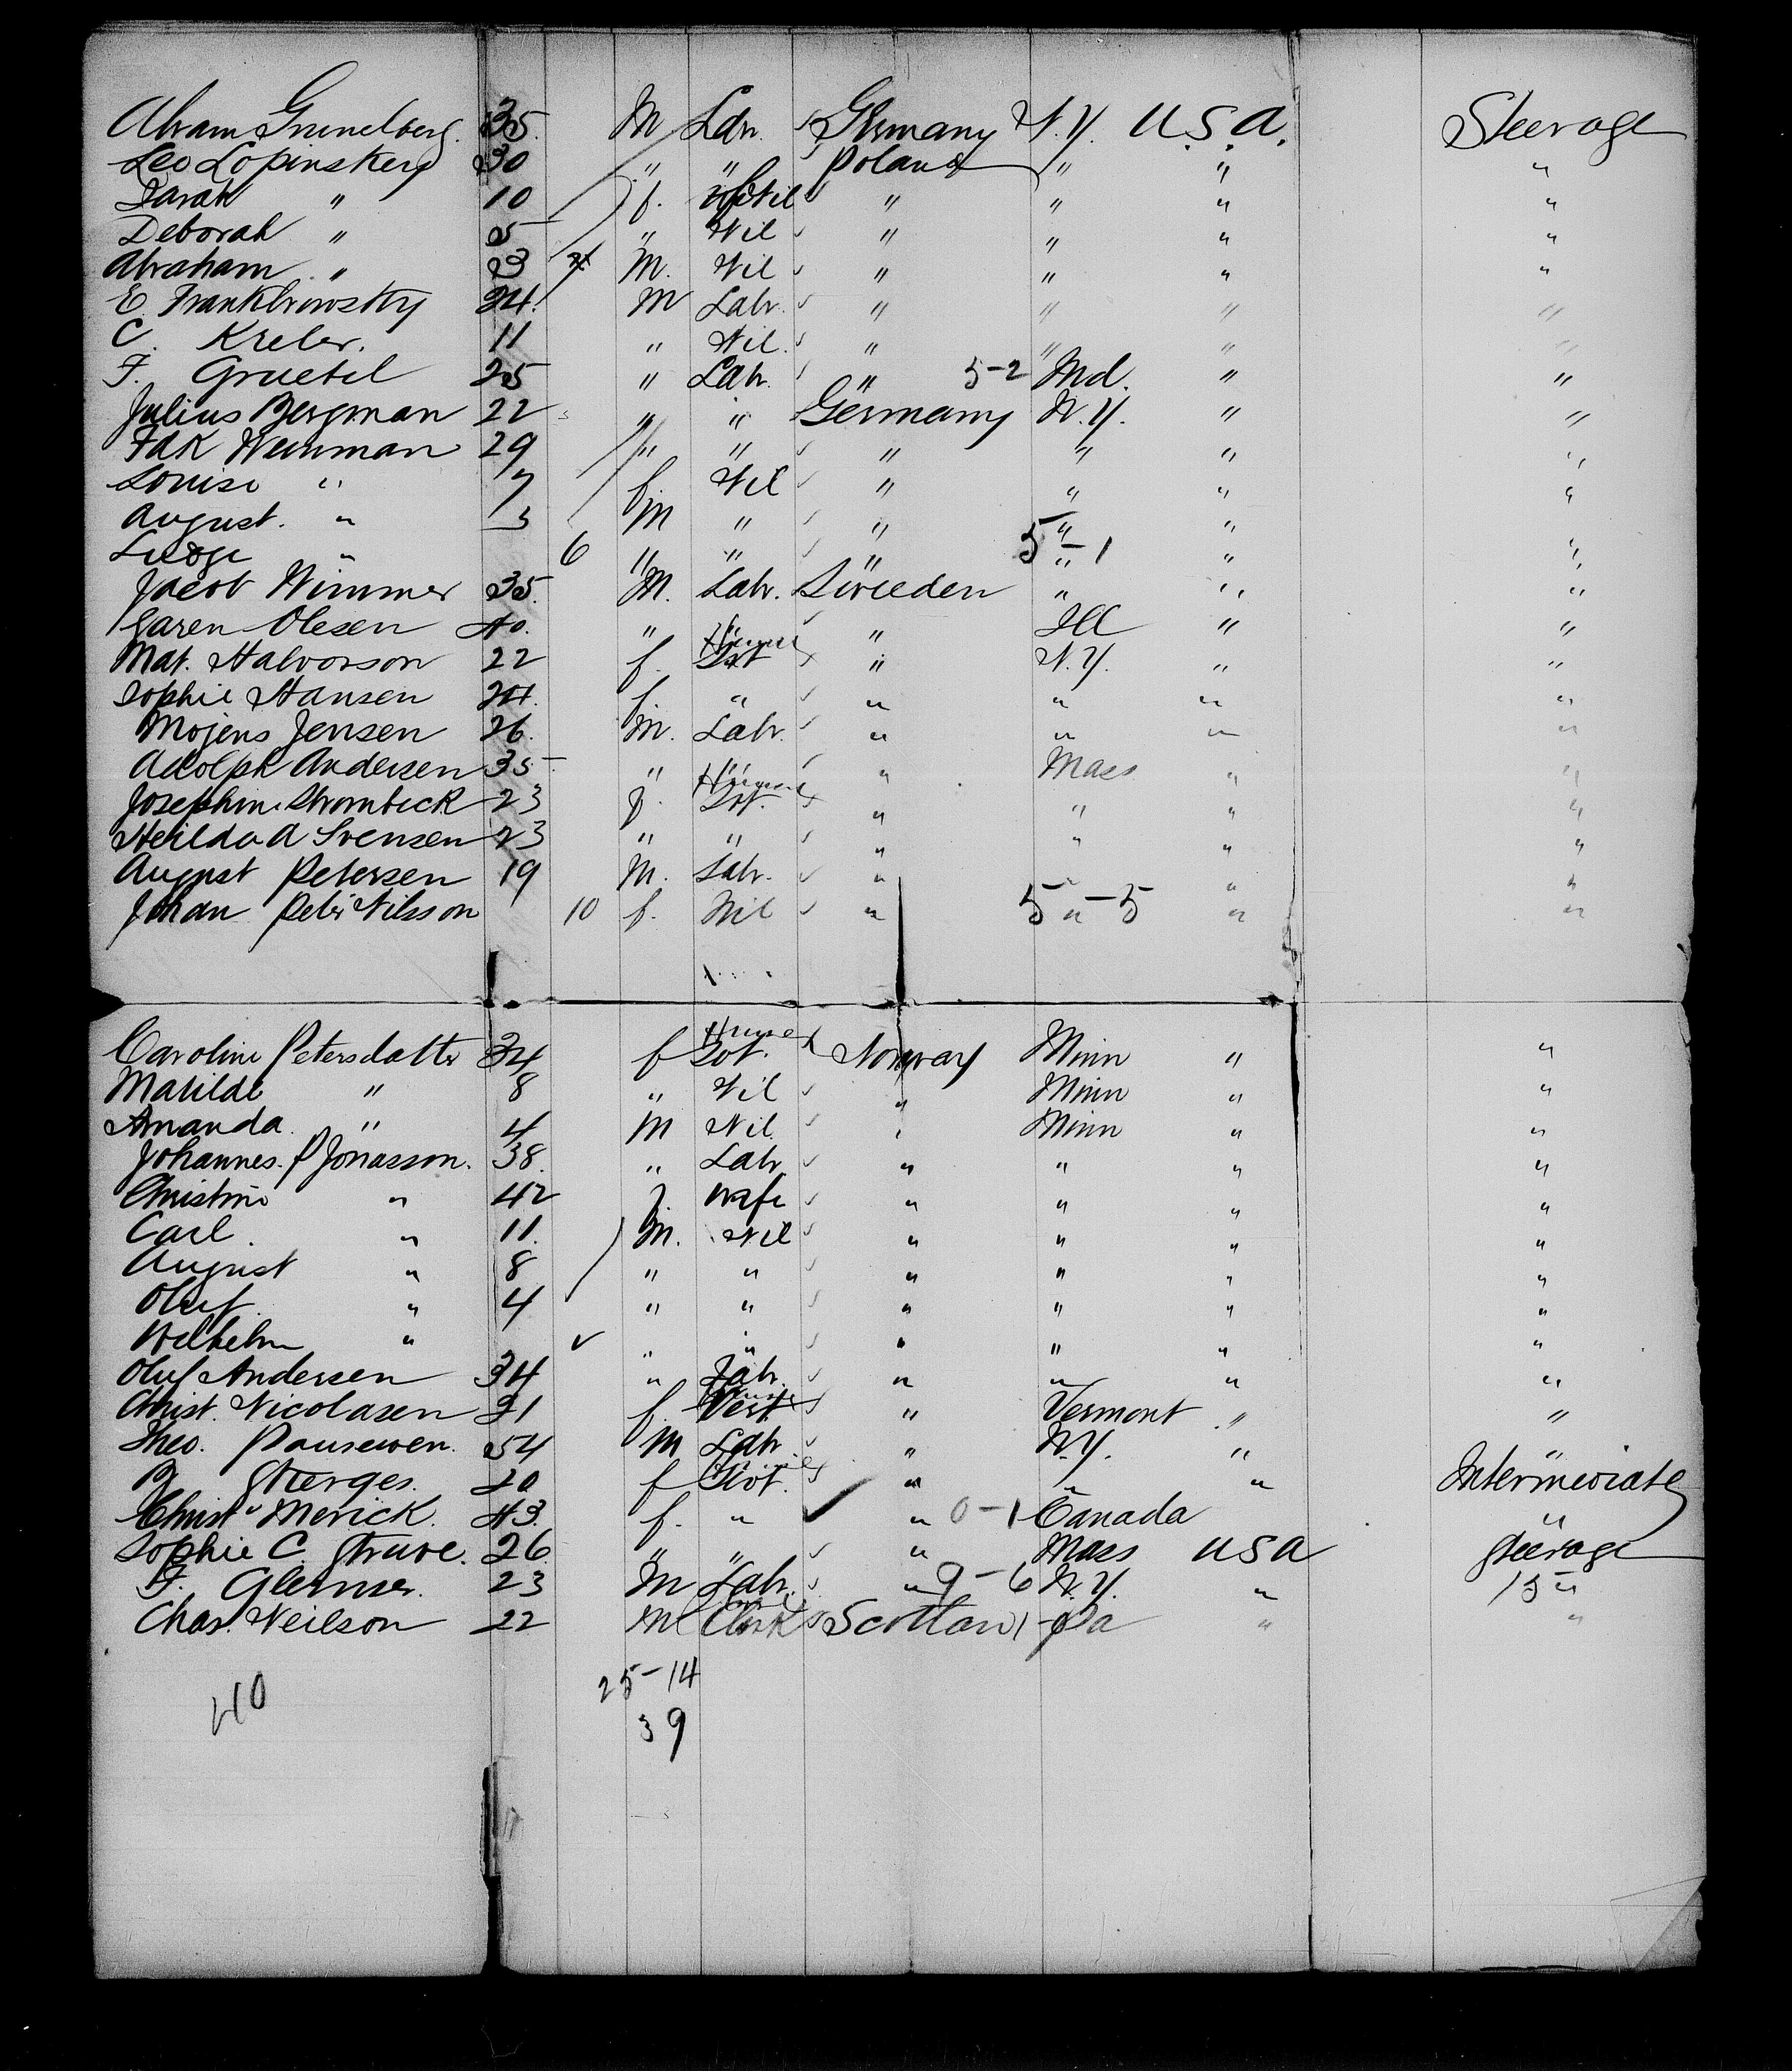 Abram Grunelberg. 35. M Labr. Germany N.Y. U.S.A. Steerage
Leo Lopinskey 30 " " Poland " " "
Sarah " 10 f. Nil " " " "
Deborah " 5 " Nil " " " "
Abraham " 3 M. Nil " " " "
E. Frankbrowsky 24. M Labr. " " " "
C. Kreler. 11 " Nil. " " " "
F. Gruetel 25 " Labr. " 5-2 Md. " "
Julius Bergman 22 " " Germany N.Y. " "
Weinman 29 " " " " " "
Louise " 7 f. Nil " " " "
August. " 3 M " " " " "
" 6 " " " 5-1 " " "
Jacob Wimmer 35. M. Labr. Sweeden " " "
Karen Olesen 40. " " " Ill " "
Mat. Halvorson 22 f. " N.Y. " "
Sophie Hansen 24. f. " " " " "
Mojens Jensen 26. M. Labr. " " " "
Adolph Andersen 35. " " " Mass " "
Josephine Strombeck 23 f. " " " "
Heilda A Svensen 23 " " " " " "
August Petersen 19 M. Labr. " " " "
Johan Peter Nilsson 10 f. Nil " 5 " - 5 " "
Caroline Petersdatter 34 f Norway Minn " "
Matilde " 8 " Nil " Minn " "
Amanda. " 4 M Nil. " Minn " "
Johannes. P Jonasson. 38. " Labr " " " "
Christine " 42 f. Wife " " " "
Carl. " 11. M. Nil " " " "
August " 8 " " " " " "
Oluf. " 4 " " " " " "
Wilhelm " " " " " " "
Oluf Andersen 34 " Labr. " " " "
Christ. Nicolasen 21 f. " Vermont " "
Theo. Pausewen. 54 M Labr " N.Y. " "
Sterges. 20 f " " " Intermediate
Christ" Merick. 43. f. " " 0-1 Canada "
Sophie C. Struve. 26. " " " Mass USA Steerage
F. Glesmer. 23 M Labr. " 9-6 N.Y. " 15 "
Chas. Neilson 22 M Clerk Scotland 1- Pa " "
25-14
40
39